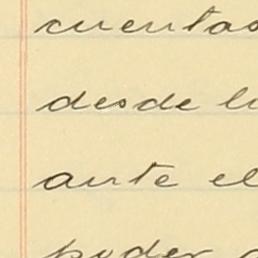 cuentas
desde l
ante el
poder